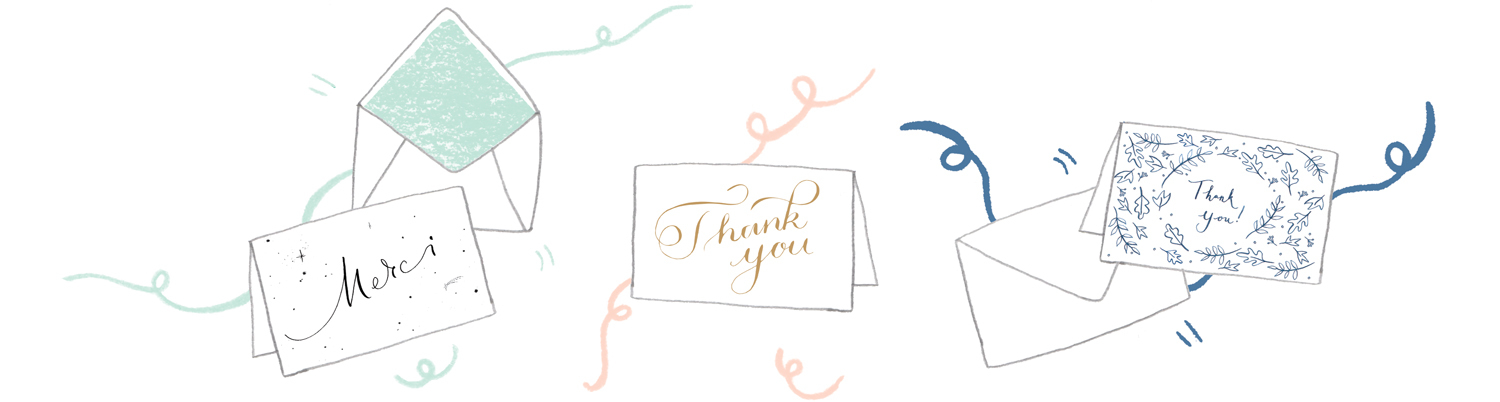 Merci
Thank
you
Thank
you!